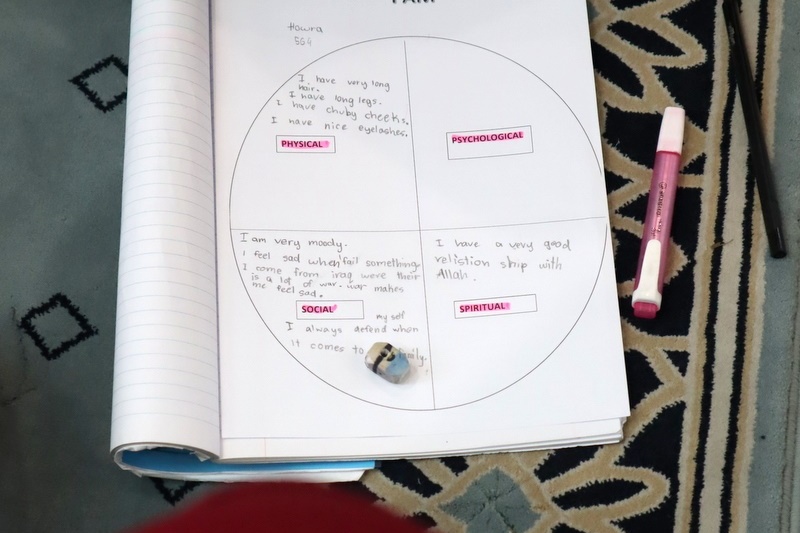 I AM
Howra
5G4
I have very long
hair.
I have long legs.
I have chuby cheeks.
I have nice eyelashes.
PHYSICAL
PSYCHOLOGICAL
I am very moody.
I feel sad when fail something
I come from iraq were their
is a lot of war. war makes
me feel sad.
SOCIAL
my self
I always defend when
it comes to family.
I have a very good
relistion ship with
Allah.
SPIRITUAL